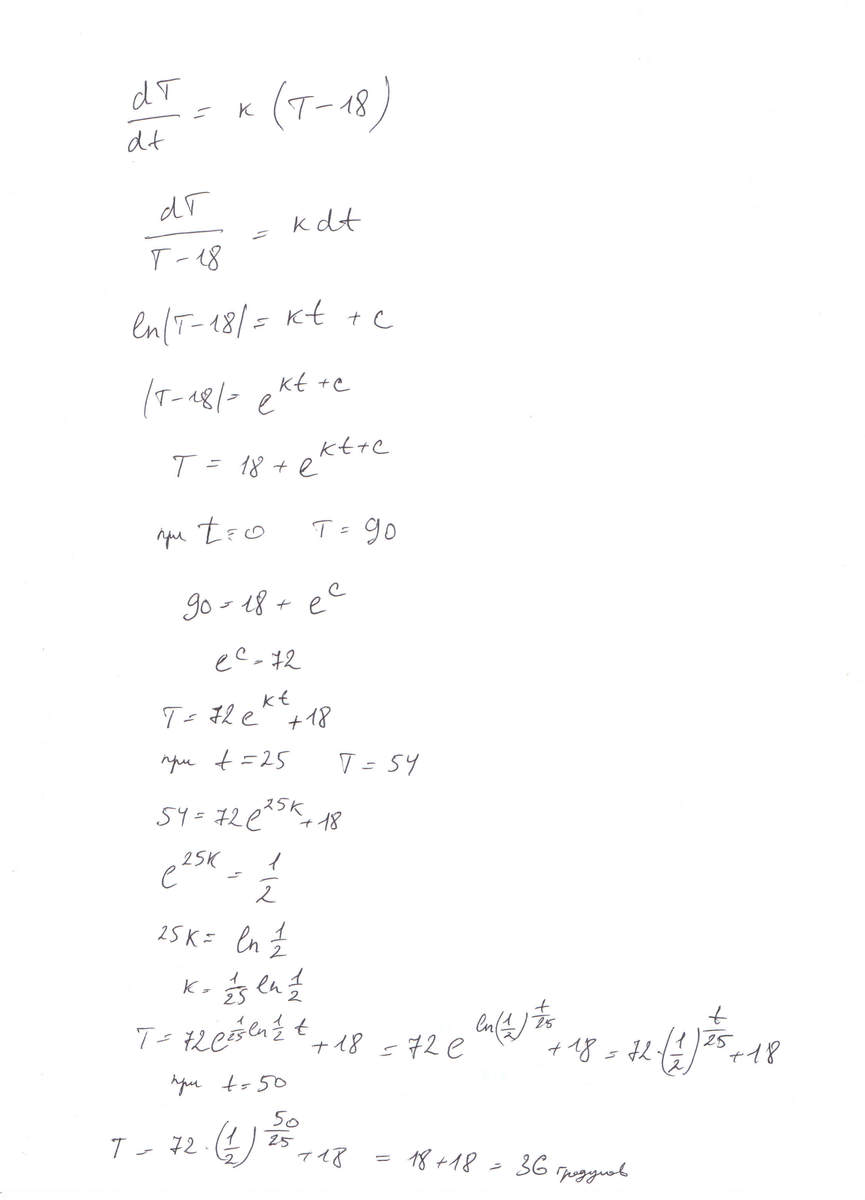 dT/dt = к (T-18)
dT/(T-18) = кdt
ln|T-18| = кt + c
|T-18| = e^(кt+c)
T = 18 + e^(кt+c)
при t=0 T = 90
90 = 18 + e^c
e^c = 72
T = 72e^(кt) + 18
при t = 25 T = 54
54 = 72e^(25к) + 18
e^(25к) = 1/2
25к = ln 1/2
к = 1/25 ln 1/2
T = 72e^(1/25 ln 1/2 t) + 18 = 72e^(ln(1/2)^(t/25)) + 18 = 72·(1/2)^(t/25) + 18
при t = 50
T = 72·(1/2)^(50/25) + 18 = 18+18 = 36 градусов